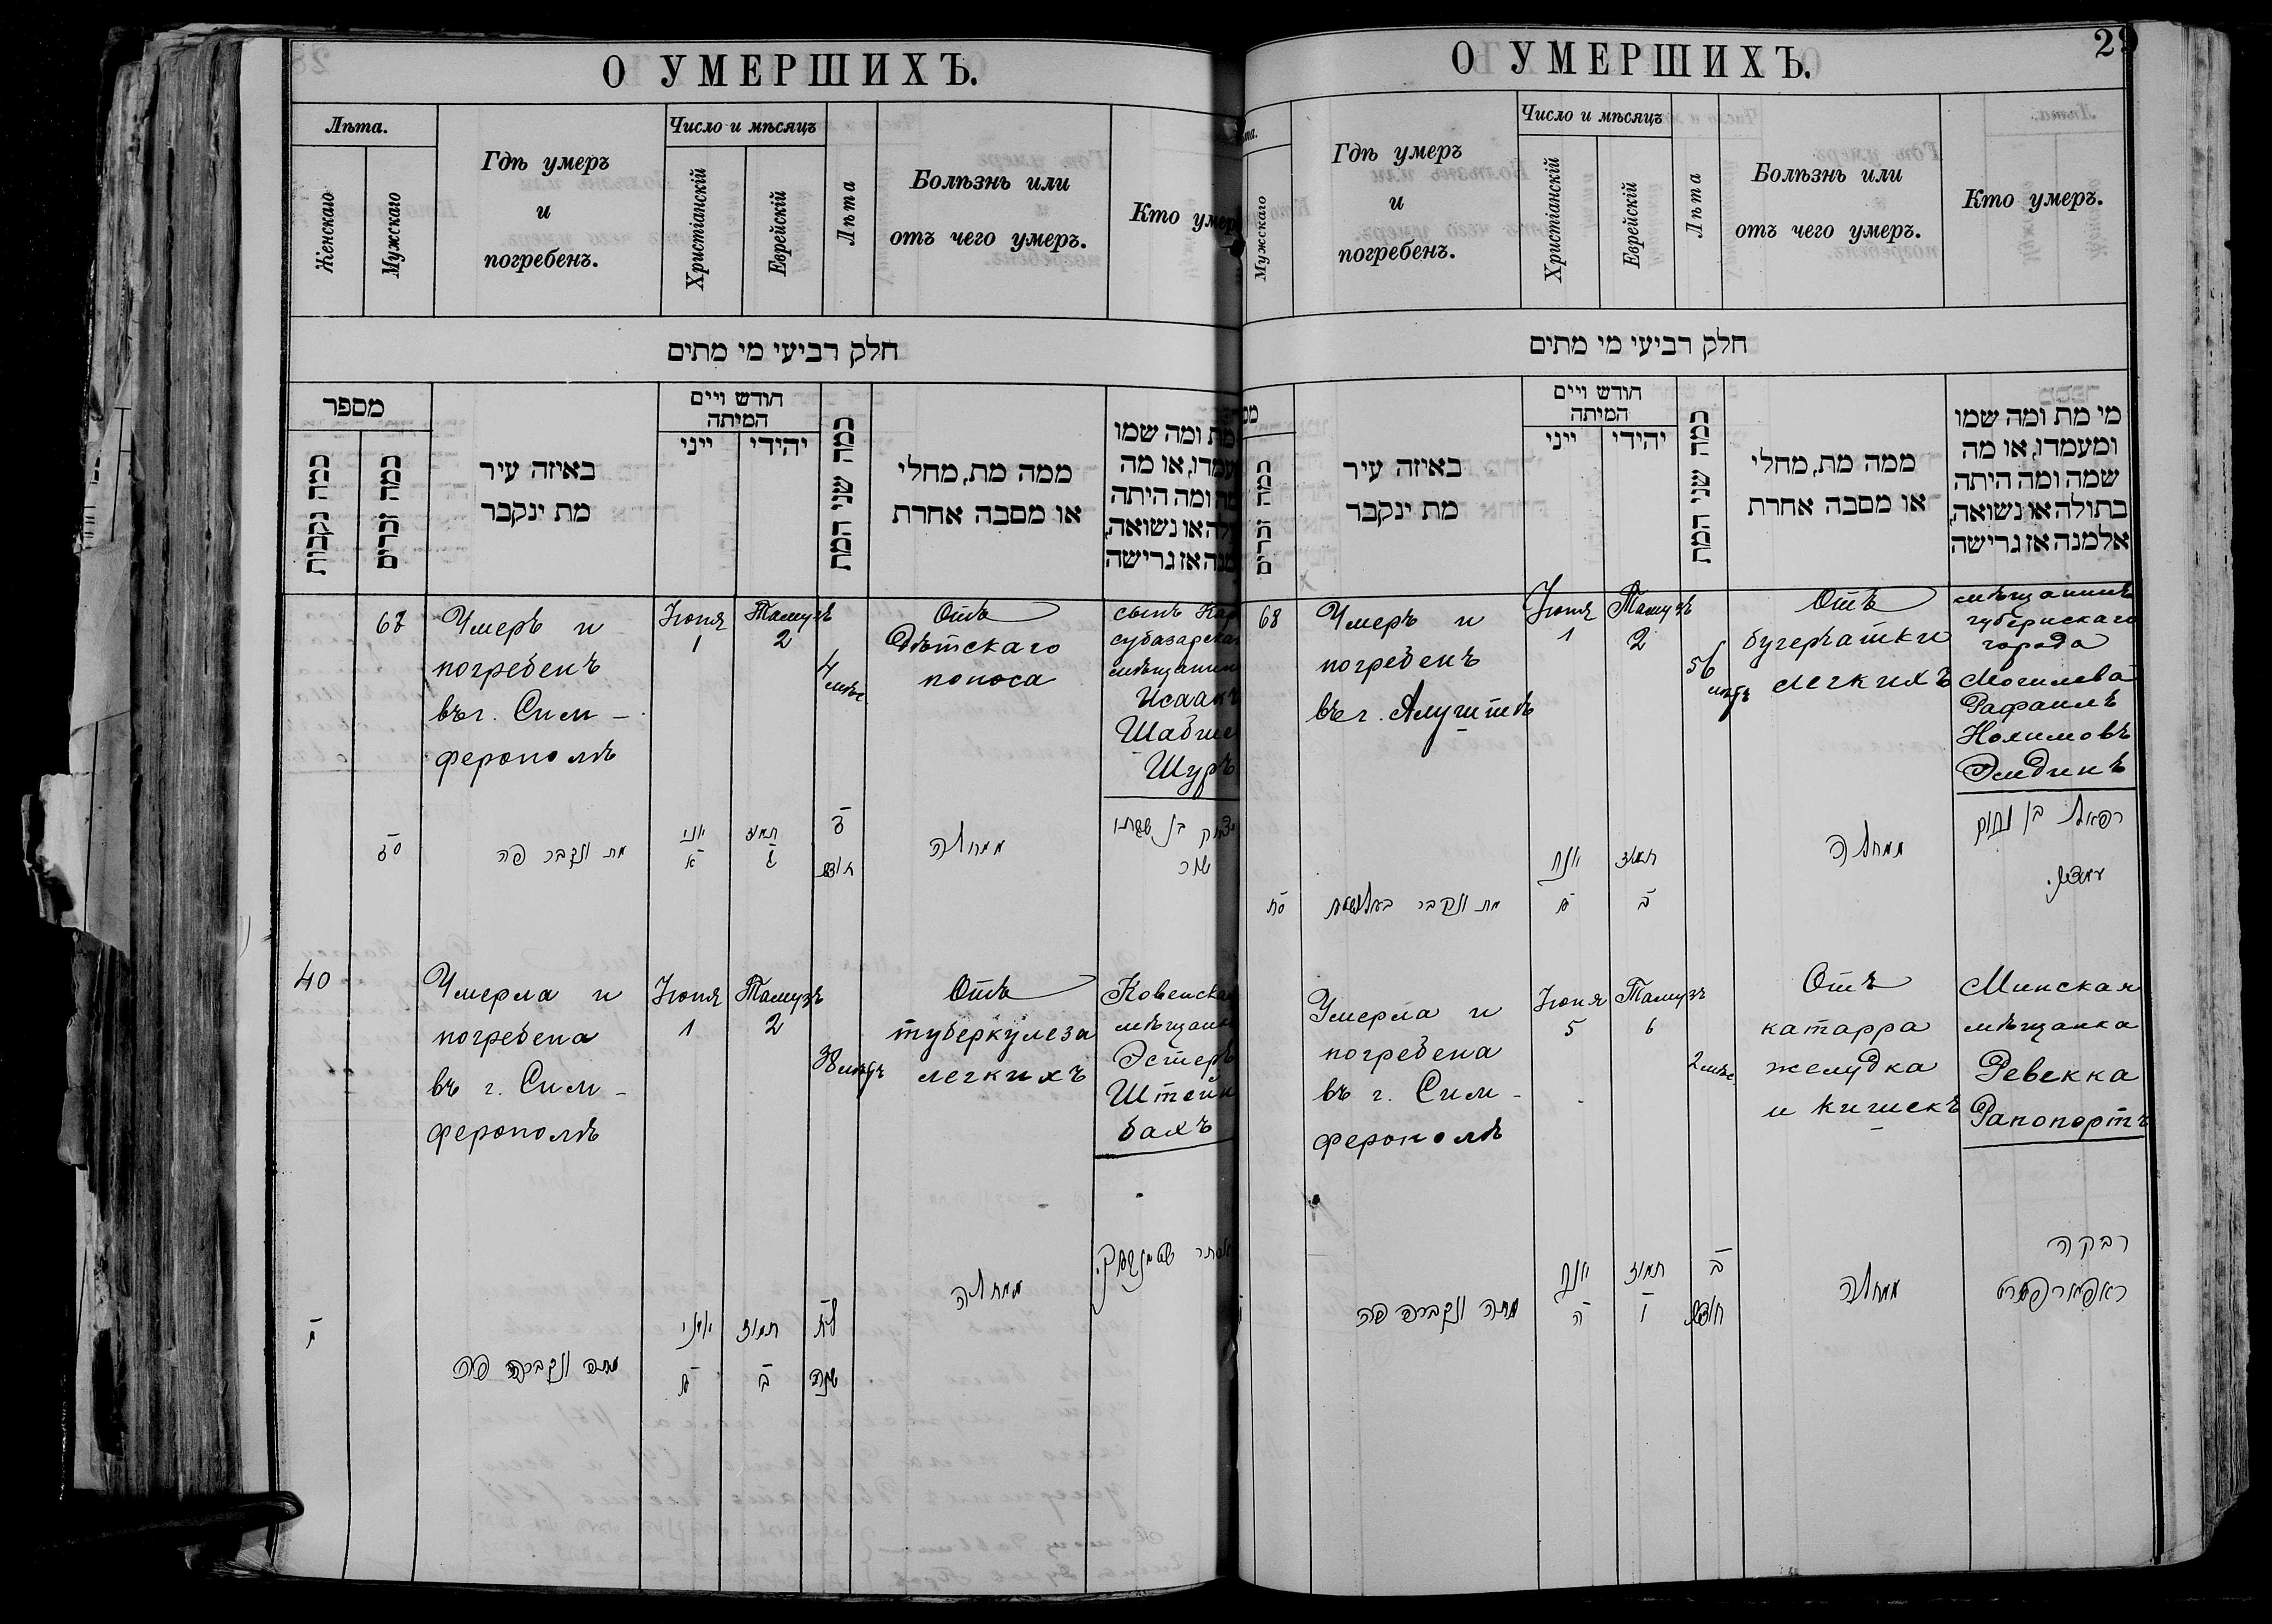 О УМЕРШИХЪ.
Лѣта.
Женскаго
Мужскаго
Гдѣ умеръ
и
погребенъ.
Число и мѣсяцъ
Христіанскій
Еврейскій
Лѣта
Болѣзнь или
отъ чего умеръ.
Кто умер
חלק רביעי מי מתים
מספר
כמה נקבות
כמה זכרים
באיזה עיר
מת ינקבר
חודש ויים
המיתה
ייני
יהידי
כמה שני המת
ממה מת, מחלי
או מסבה אחרת
מת ומה שמו
עמדו, או מה
מה ומה היתה
לה או נשואה,
מנה אז גרישה
67
Умеръ и
погребенъ
въ г. Сим-
ферополѣ
Іюня
1
Тамузъ
2
4
мѣс
Отъ
Дѣтскаго
поноса
сынъ Кар
субазарска
мѣщанин
Исаакъ
Шабше
Шуръ
סז
מת ונקבר פה
יוני
א
תמוז
ב
ד
חודש
ממחלה
יצחק בן שבתי
שור
40
Умерла и
погребена
въ г. Сим-
ферополѣ
Іюня
1
Тамузъ
2
38 лѣтъ
Отъ
туберкулеза
легкихъ
Ковенская
мѣщанк
Эстеръ
Штейн
бахъ
מ
מתה ונקברה פה
יוני
א
תמוז
ב
לח
שנה
ממחלה
אסתר
29
О УМЕРШИХЪ.
та.
Мужскаго
Гдѣ умеръ
и
погребенъ.
Число и мѣсяцъ
Христіанскій
Еврейскій
Лѣта
Болѣзнь или
отъ чего умеръ.
Кто умеръ.
חלק רביעי מי מתים
מס
כמה זכרים
באיזה עיר
מת ינקבר
חודש ויים
המיתה
ייני
יהידי
כמה שני המת
ממה מת, מחלי
או מסבה אחרת
מי מת ומה שמו
ומעמדו, או מה
שמה ומה היתה
בתולה או נשואה,
אלמנה אז גרישה
68
Умеръ и
погребенъ
въ г. Алуштѣ
Іюня
1
Тамузъ
2
56
лѣтъ
Отъ
бугерчатки
легкихъ
мѣщанинъ
губернскаго
города
Могилева
Рафаилъ
Нохимовъ
Эйдинъ
סח
מת ונקבר באלושטא
יוני
א
תמוז
ב
ממחלה
רפאל בן נחום
Умерла и
погребена
въ г. Сим-
ферополѣ
Іюня
5
Тамузъ
6
2 мѣс
Отъ
катарра
желудка
и кишекъ
Минская
мѣщанка
Ревекка
Рапопортъ
מתה ונקברה פה
יוני
ה
תמוז
ו
ב
חודש
ממחלה
רבקה
ראפאפורט